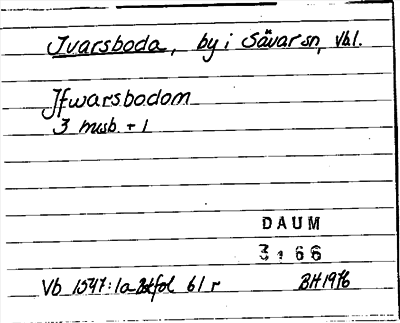 Ivarsboda, by i Sävar sn, Vbl.
Ifwarsbodom
3 mub. + 1
DAUM
3:66
Vb 1547:1a fol 61 r
BH 1976